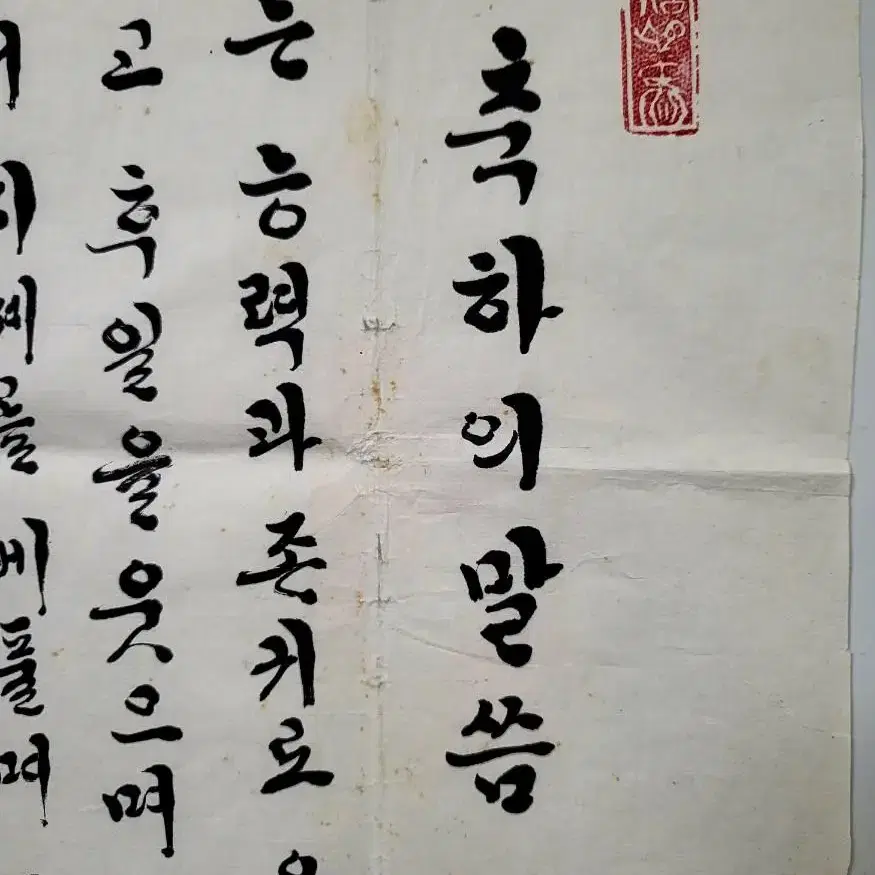 축하의말씀
은 능력과 존귀로
고 후일을 웃으며
베풀며